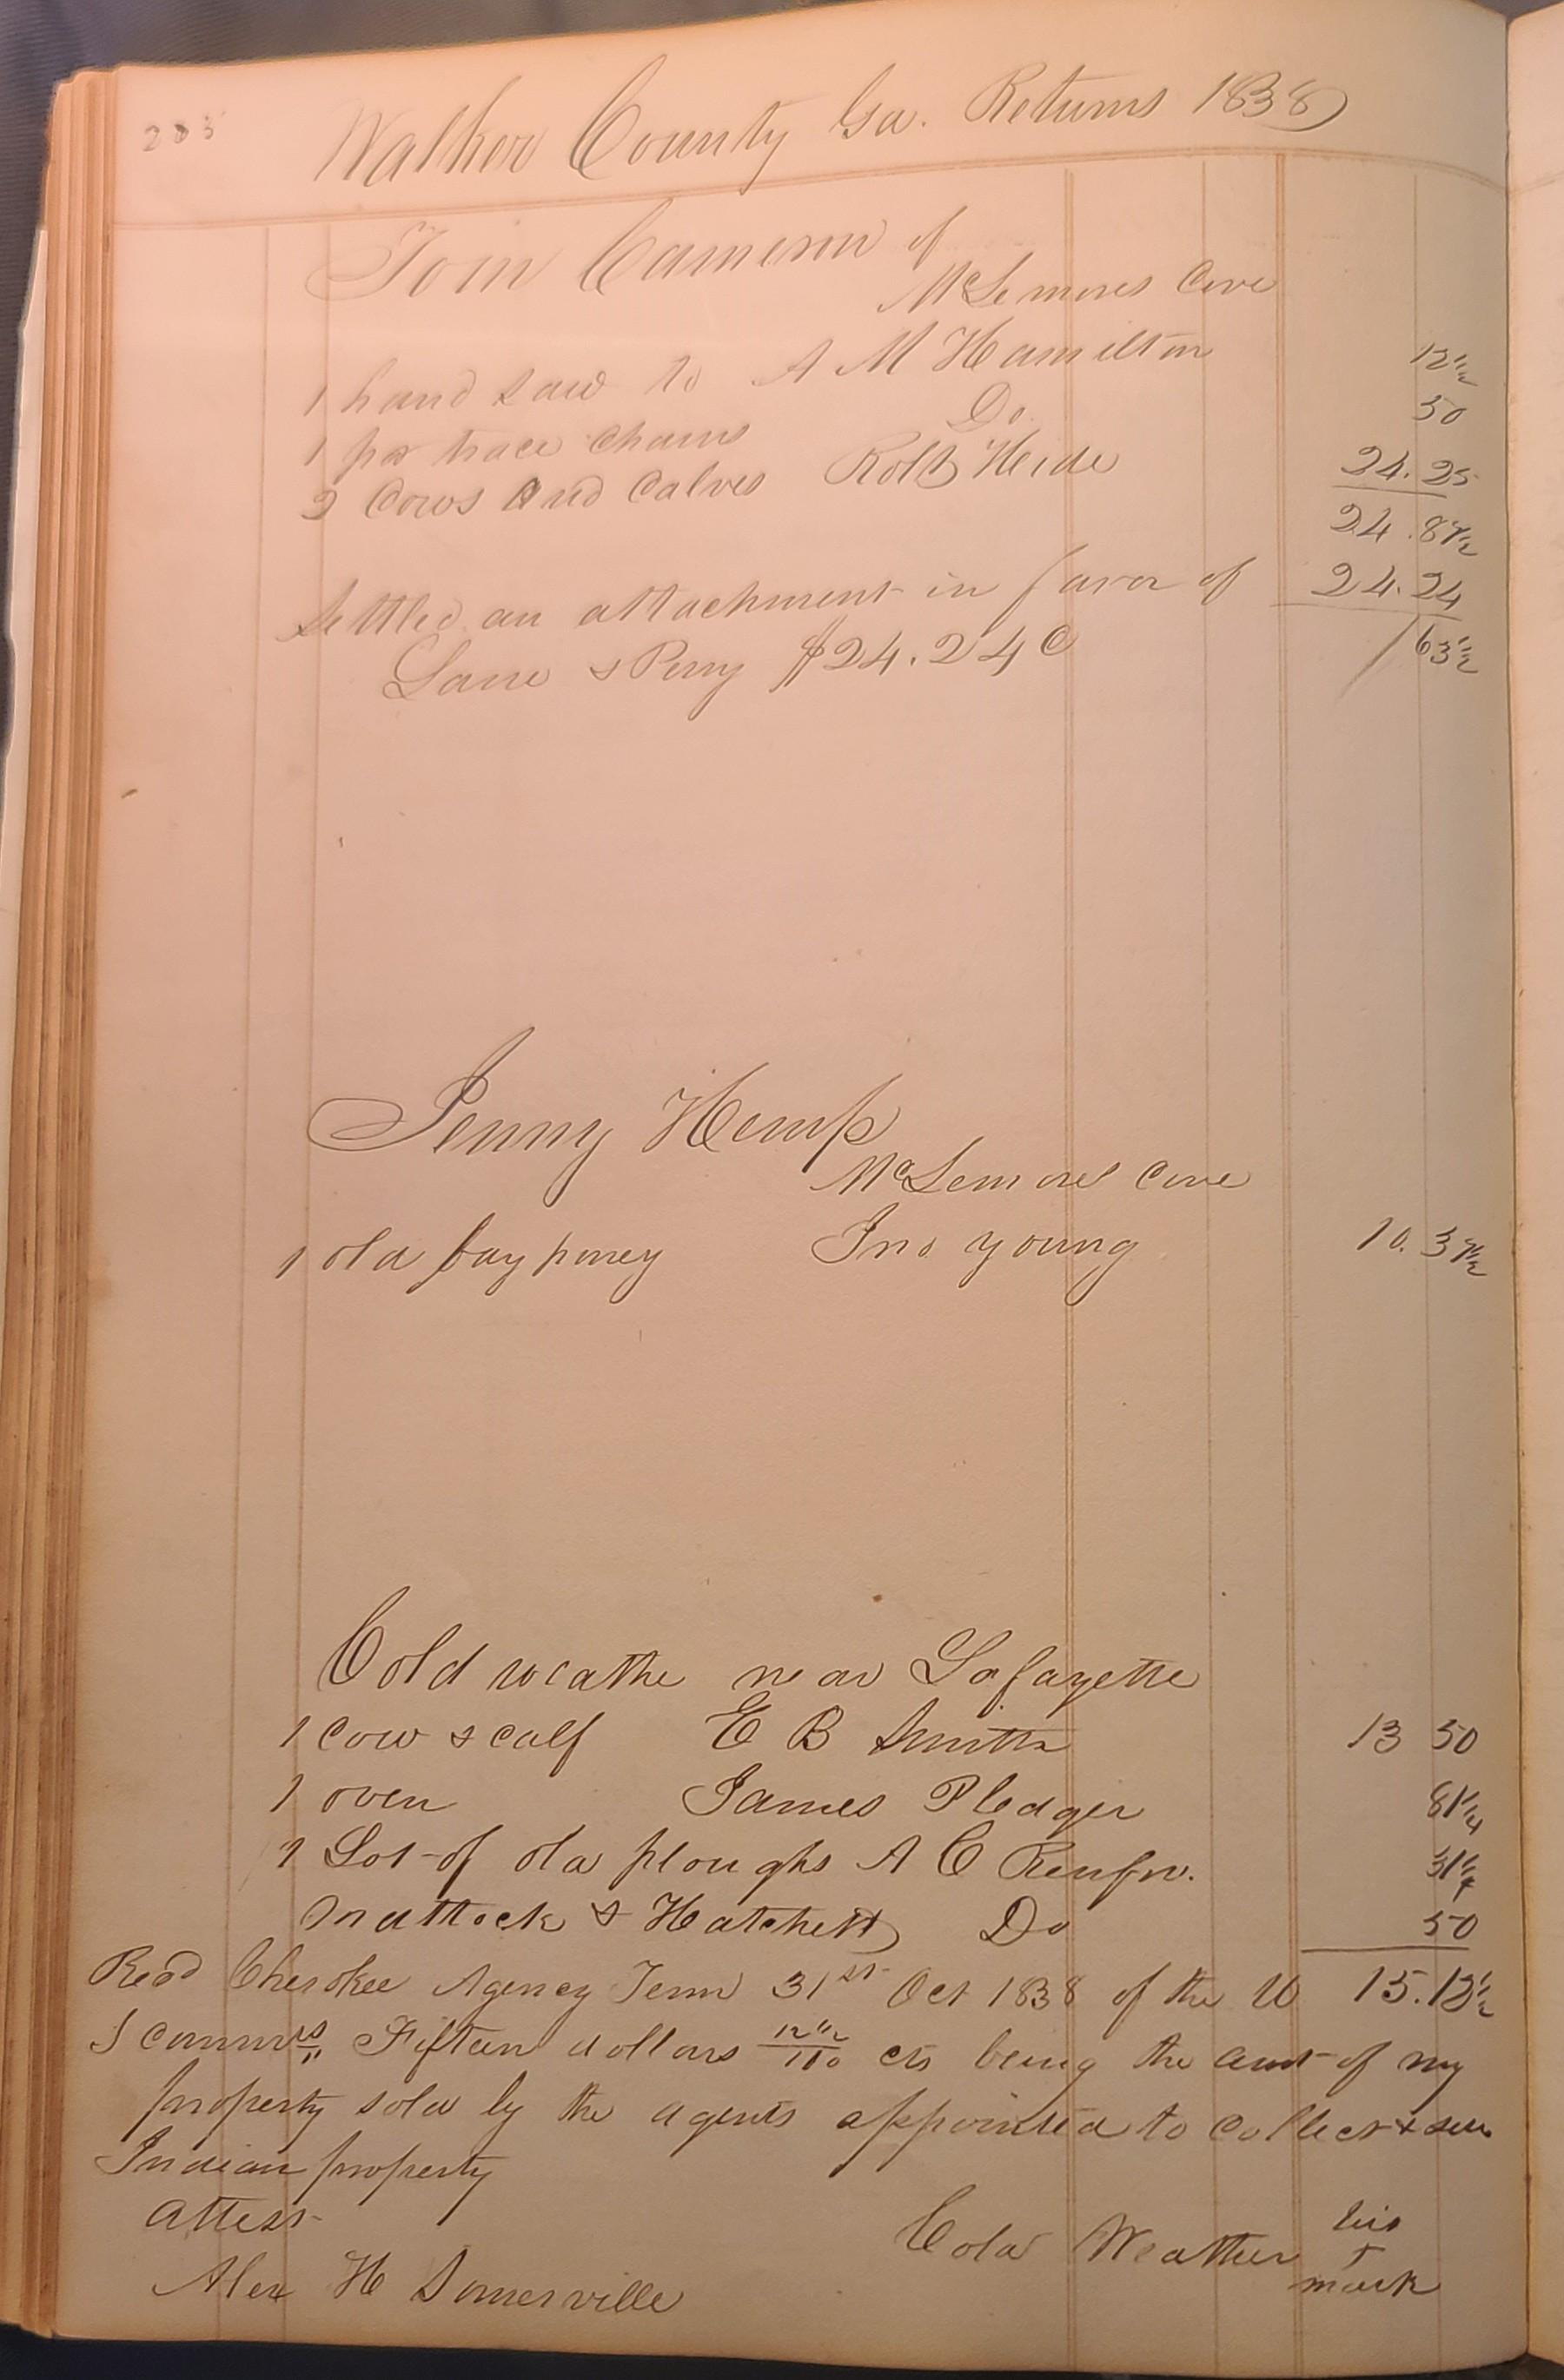 203
Walker County Ga. Returns 1838
Tom Cameron of
McLemores Cove
1 hand saw to A M Hamilton 12 1/2
1 pr trace chains Do. 50
2 Cows and Calves Robt Heide 24.25
24.87 1/2
Settled an attachment in favor of 24.24
Lane & Perry $24.24c 63 1/2
Jenny Hemp
McLemores Cove
1 old bay poney Jno Young 10.37 1/2
Cold weathe near Lafayette
1 cow & calf E B Smith 13 50
1 oven James Pledger 81 1/4
1 Lot of old ploughs A C Renfro. 31 1/4
Mattock & Hatchett Do 50
Recd Cherokee Agency Tenn 31st Oct 1838 of the U 15.12 1/2
S Commrs Fifteen dollars 12 1/2/100 cts being the amt of my
property sold by the agents appointed to collect & sell
Indian property
Attest
Cold Weather his
x
mark
Alex H Somerville